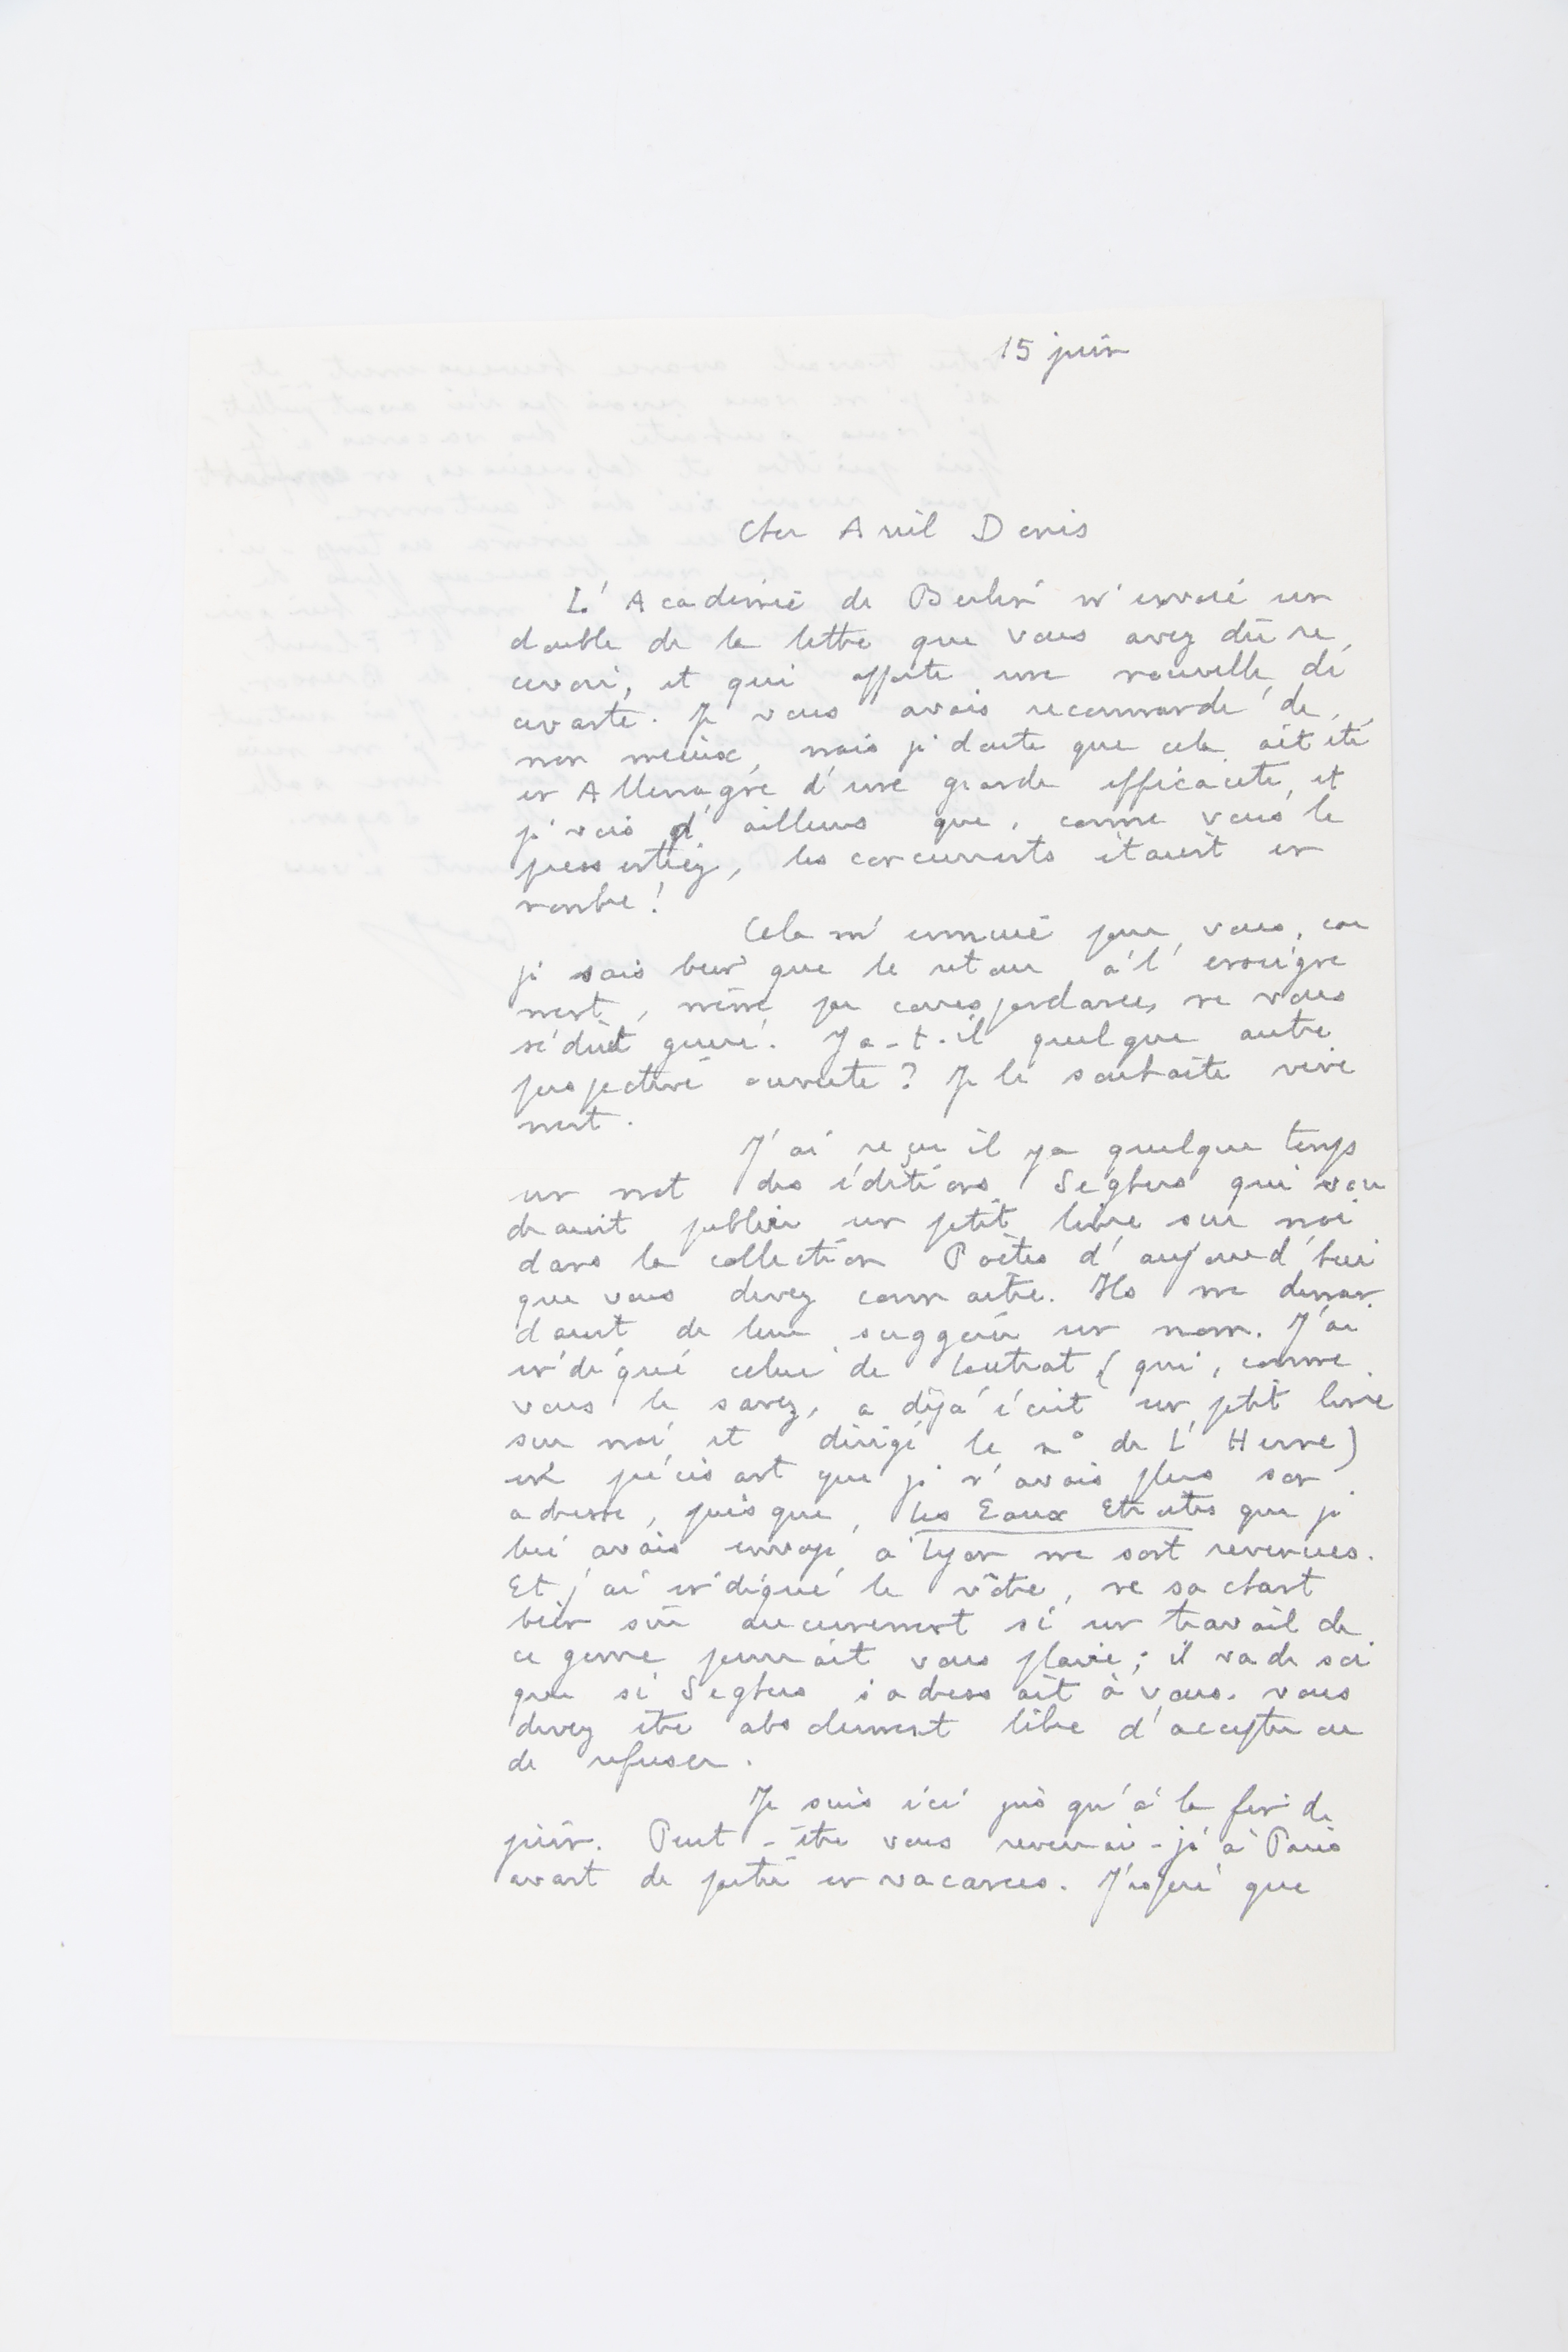 15 juin
Cher Avril Denis
L'Académie de Berlin m'envoie un
double de la lettre que vous avez dû re
cevoir, et qui apporte une nouvelle dé
cevante. Je vous avais recommandé de
mon mieux, mais je doute que cela ait été
en Allemagne d'une grande efficacité, et
je vois d'ailleurs que, comme vous le
pressentiez, les concurrents étaient en
nombre!
Cela m'ennuie pour vous, car
je sais bien que le retour à l'enseigne
ment, même par correspondance, ne vous
séduit guère. Y a-t-il quelque autre
perspective ouverte? Je le souhaite vive
ment.
J'ai reçu il y a quelque temps
un mot des éditions Seghers qui vou
draient publier un petit livre sur moi
dans la collection Poètes d'aujourd'hui
que vous devez connaître. Ils me deman
daient de leur suggérer un nom. J'ai
indiqué celui de Leutrat (qui, comme
vous le savez, a déjà écrit un petit livre
sur moi et dirigé le n° de L'Herne)
en précisant que je n'avais plus son
adresse, puisque les Eaux Etroites que je
lui avais envoyé à Lyon me sont revenues.
Et j'ai indiqué le vôtre, ne sachant
bien sûr aucunement si un travail de
ce genre pourrait vous plaire; il va de soi
que si Seghers s'adressait à vous, vous
devez être absolument libre d'accepter ou
de refuser.
Je suis ici jusqu'à la fin de
juin. Peut-être vous reverrai-je à Paris
avant de partir en vacances. J'espère que